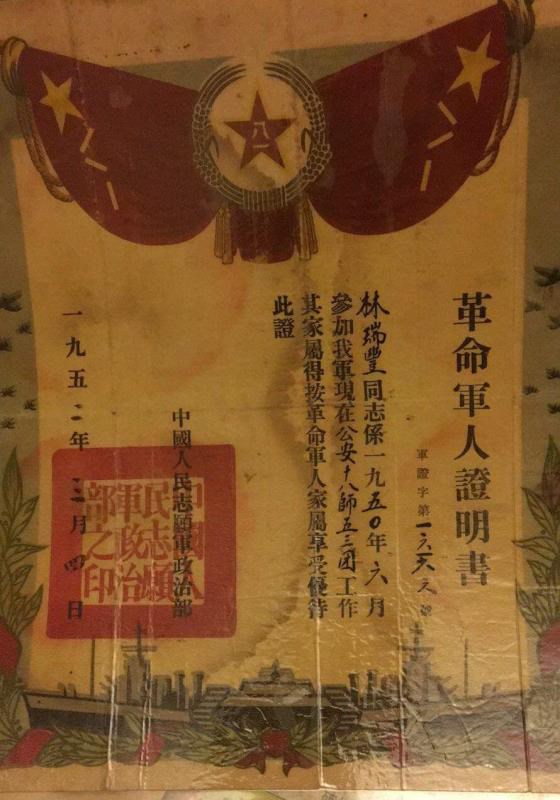 八一
革命軍人證明書
軍證字第一六六又號
林瑞豐同志係一九五〇年六月
參加我軍現在公安十八師五三团工作
其家屬得按革命軍人家屬享受優待
此證
中國人民志願軍政治部
一九五二年三月四日
中國人
民志願
軍政治
部之印